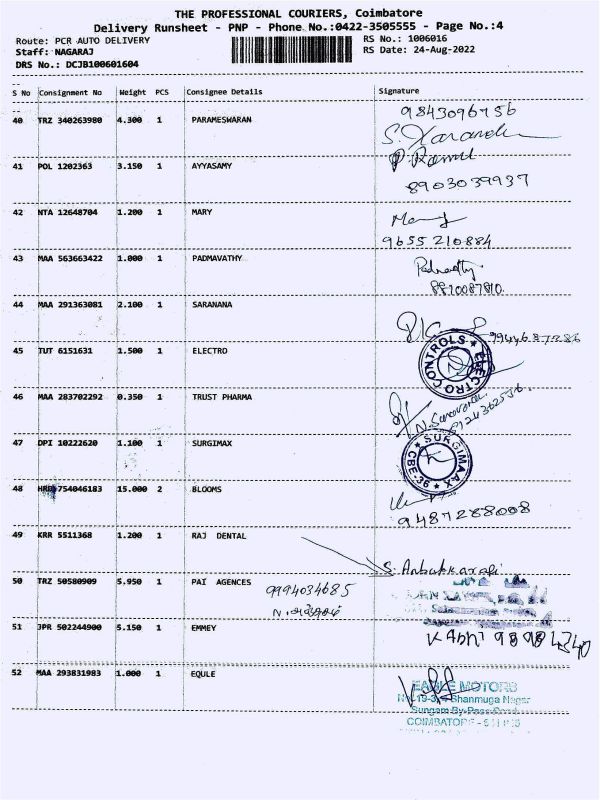 THE PROFESSIONAL COURIERS, Coimbatore
Delivery Runsheet - PNP - Phone No.:0422-3505555 - Page No.:4
Route: PCR AUTO DELIVERY RS No.: 1006016
Staff: NAGARAJ RS Date: 24-Aug-2022
DRS No.: DCJB100601604
S No Consignment No Weight PCS Consignee Details Signature
40 TRZ 340263980 4.300 1 PARAMESWARAN 9843096756
41 POL 1202363 3.150 1 AYYASAMY
8903039937
42 NTA 12648704 1.200 1 MARY
9655 210884
43 MAA 563663422 1.000 1 PADMAVATHY
44 MAA 291363081 2.100 1 SARANANA
45 TUT 6151631 1.500 1 ELECTRO
ELECTRO CONTROLS
46 MAA 283702292 0.350 1 TRUST PHARMA
47 DPI 10222620 1.100 1 SURGIMAX
SURGIMAAX CBE-36
48 754046183 15.000 2 BLOOMS
9487288008
49 KRR 5511368 1.200 1 RAJ DENTAL
50 TRZ 50580909 5.950 1 PAI AGENCES 9994034685
51 JPR 502244900 5.150 1 EMMEY
52 MAA 293831983 1.000 1 EQULE
EAGLE MOTORS
Shanmuga Nagar
Sungam By-Pass
COIMBATORE